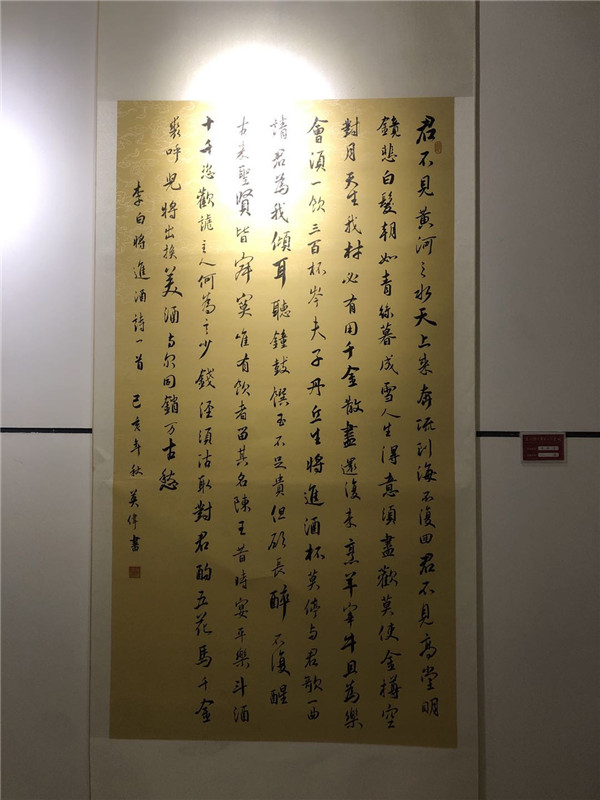 君不見黃河之水天上来奔流到海不復回君不見高堂明
鏡悲白髮朝如青絲暮成雪人生得意須盡歡莫使金樽空
對月天生我材必有用千金散盡還復来烹羊宰牛且為樂
會須一飲三百杯岑夫子丹丘生將進酒杯莫停与君歌一曲
請君為我傾耳聽鐘鼓饌玉不足貴但願長醉不復醒
古来聖賢皆寂寞唯有飲者留其名陳王昔時宴平樂斗酒
十千恣歡謔主人何為言少錢徑須沽取對君酌五花馬千金
裘呼兒將出換美酒与尔同銷万古愁
李白將進酒詩一首 己亥年秋 英偉書